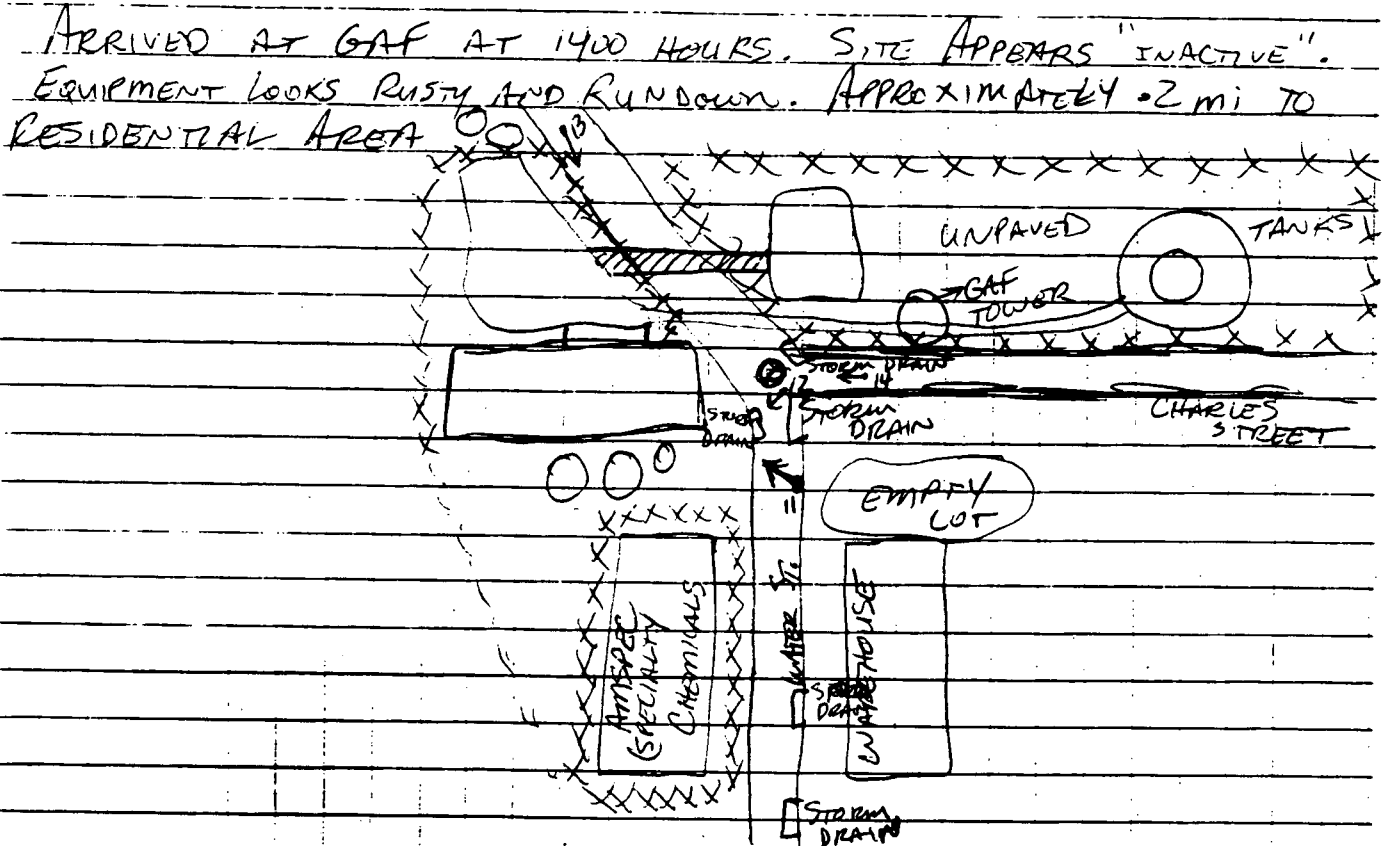 ARRIVED AT GAF AT 1400 HOURS. SITE APPEARS "INACTIVE".
EQUIPMENT LOOKS RUSTY AND RUNDOWN. APPROXIMATELY .2 mi TO
RESIDENTIAL AREA
13
UNPAVED
TANKS
GAF
TOWER
STORM DRAIN
12
14
STORM
DRAIN
STORM
DRAIN
CHARLES
STREET
11
EMPTY
LOT
WATER ST.
AMSPEC
SPECIALTY
CHEMICALS
WAREHOUSE
STORM
DRAIN
STORM
DRAIN